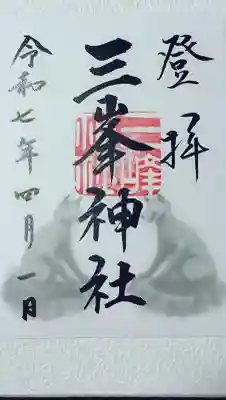 登拝
三峯神社
令和七年四月一日